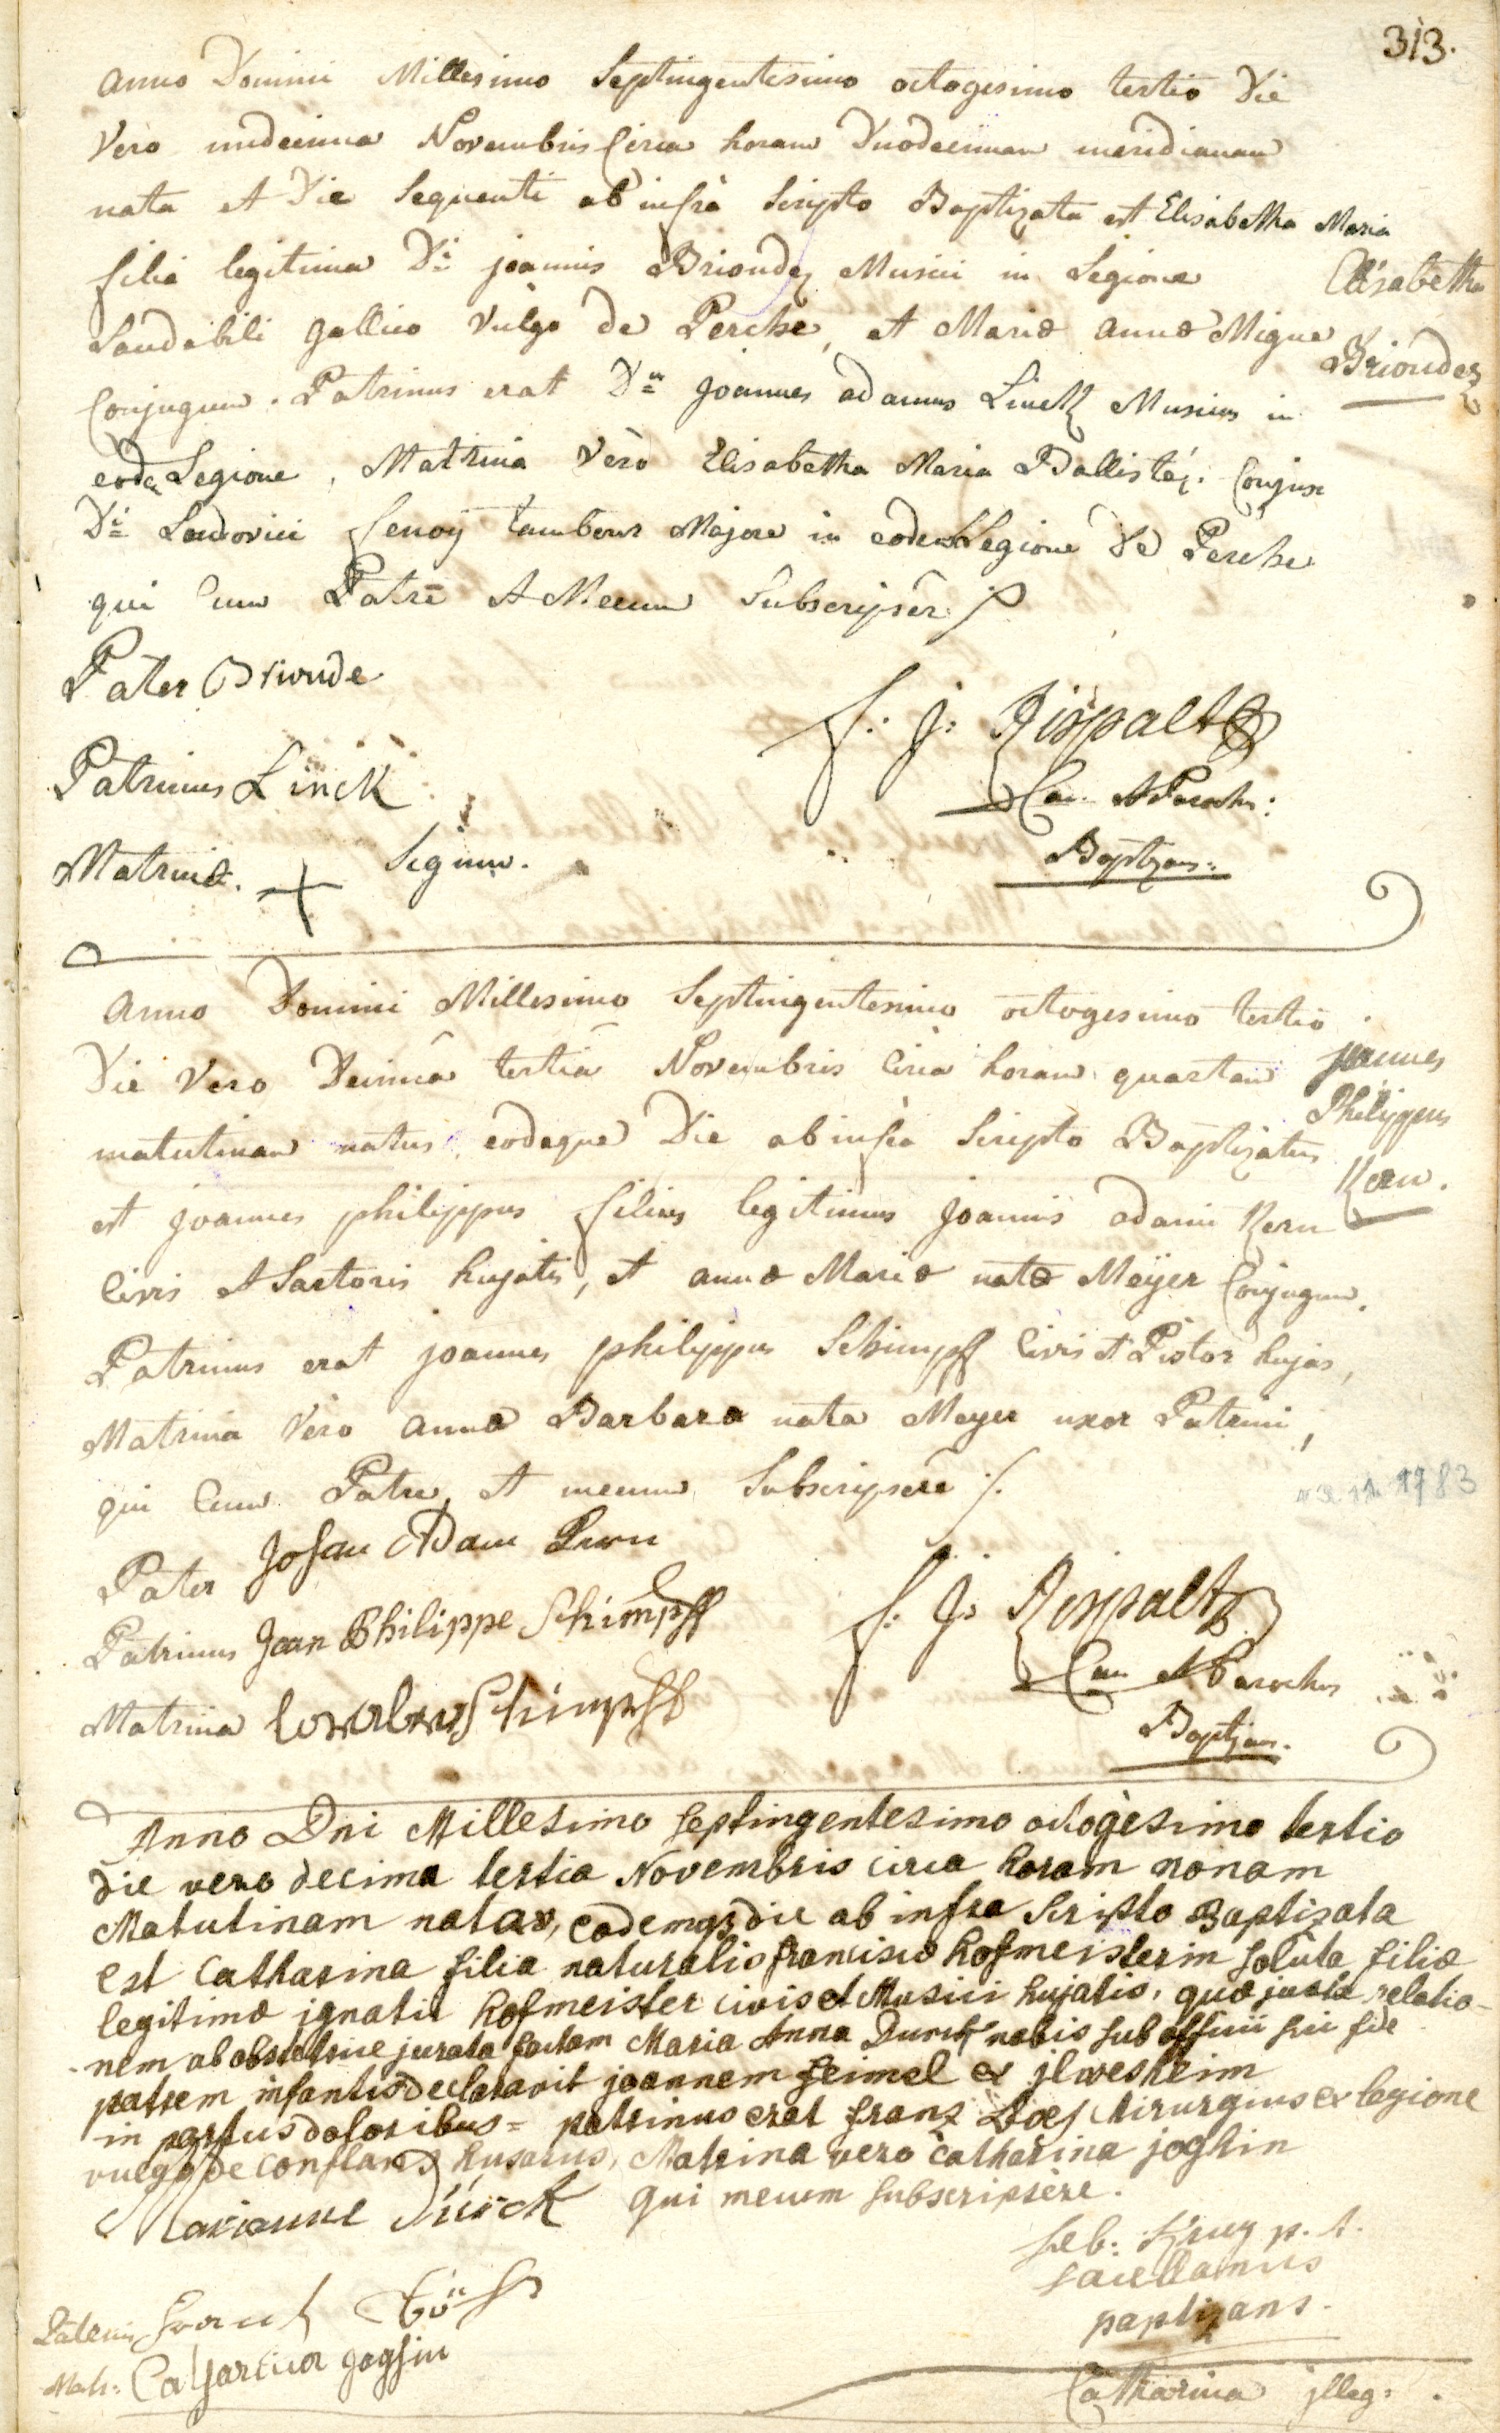 313.
Anno Domini Millesimo Septingentesimo octogesimo tertio Die
Vero undecima Novembris Circa horam Duodecimam meridianam
nata et Die Sequenti ab infrà Scripto Baptizata est Elisabetha Maria
filia legitima D.i joannis Briondez Musici in Legione
Laudabili gallica Vulgo de Perche, et Mariæ annæ Migne
Conjugum. Patrinus erat D.us joannes adamus Linck Musicus in
eadem Legione, Matrina Verò Elisabetha Maria Ballistéz. Conjux
D.i Ludovici Lenoÿ tambour Majore in eadem Legione de Perche
qui Cum Patre et Mecum Subscripser:
Elisabetha
Briondez
Pater Brionde
Patrinus Linck
Matrinæ. + Signum.
f: J: Rispaltz
Can. et Paroch:
Baptizans:
Anno Domini Millesimo Septingentesimo octogesimo tertio
Die Vero Decimâ tertiâ Novembris Circa horam quartam
matutinam natus, eodeque Die ab infra Scripto Baptizatus
est joannes philippus filius legitimus joannis adami Kern
Civis et Sartoris hujatis, et annæ Mariæ natæ Meÿer Conjugum.
Patrinus erat joannes philippus Schimpff Civis et Pistor hujas,
Matrina Verò anna Barbara nata Meyer uxor Patrini,
qui Cum Patre, et mecum Subscripsere ./.
joannes
Philippus
Kern.
1783
Pater Johan Adam Kern
Patrinus Jean Philippe Schimpff
Matrina Schimpff
f: J: Rispaltz
Can et Parochus
Baptizans.
Anno Dni Millesimo septingentesimo octogesimo tertio
die vero decima tertia Novembris circa horam nonam
Matutinam nata, eademq3 die ab infra scripto Baptizata
est Catharina filia naturalis franciscæ hofmeisterin soluta filiæ
legitimæ ignatii hofmeister civis et Musici hujatis, quæ juxta relatio-
nem ab obstetrice jurata factam Maria Anna Dürck nobis sub officii sui fide
patrem infantis declaravit joannem feimel ex jlwesheim
in partus doloribus = patrinus erat franz Döss chirurgius ex legione
vulgo de conflans husarus, Matrina vero catharina joghin
qui mecum subscripsère.
Marianne Dürck
seb: Krug p. t.
sacellanus
paptizans.
Patrin frantz Döss
Matr: Catharina joghin
Catharina jlleg: